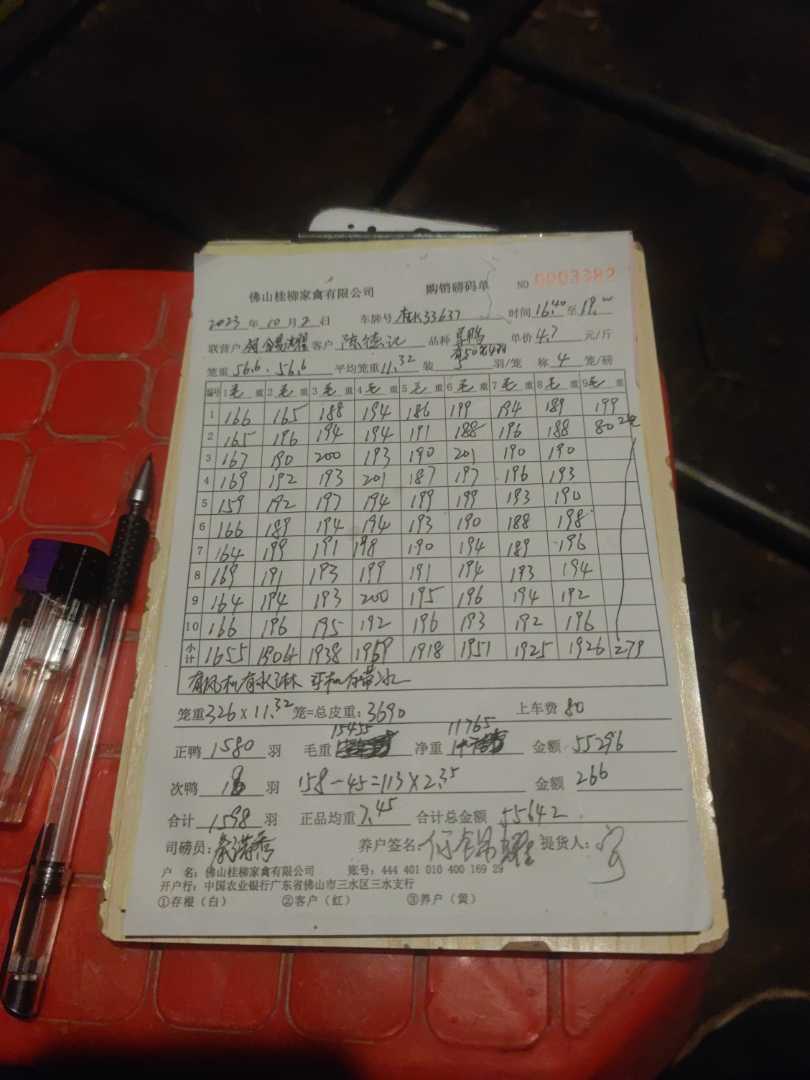 佛山桂柳家禽有限公司 购销磅码单 NO 0003382
2023 年 10 月 2 日 车牌号 33637 时间 16:40 至 19:00
联营户 何锦耀 客户 陈德记 品种 单价 4.7 元/斤
笼重 56.6、56.6 平均笼重 11.32 装 5 羽/笼 称 4 笼/磅
编号 1 毛 重 2 毛 重 3 毛 重 4 毛 重 5 毛 重 6 毛 重 7 毛 重 8 毛 重 9 毛 重
1 166 165 188 194 186 199 194 189 199
2 165 196 194 194 191 188 196 188 80
3 167 190 200 193 190 201 190 190
4 169 192 193 201 187 197 196 193
5 159 192 197 194 199 199 193 190
6 166 189 194 194 193 190 188 198
7 164 199 191 198 190 194 189 196
8 169 191 193 199 191 194 193 194
9 164 194 193 200 195 196 194 192
10 166 196 195 192 196 193 192 196
小计 1655 1904 1938 1959 1918 1951 1925 1926 279
有风机有水淋
笼重 326 x 11.32 笼=总皮重: 3690 上车费 80
正鸭 1580 羽 毛重 15455 净重 11765 金额 55296
次鸭 18 羽 158-45=113x2.35 金额 266
合计 1598 羽 正品均重 7.45 合计总金额 55642
司磅员: 养户签名: 何锦耀 提货人:
户 名: 佛山桂柳家禽有限公司 账号: 444 401 010 400 169 29
开户行: 中国农业银行广东省佛山市三水区三水支行
①存根(白) ②客户(红) ③养户(黄)